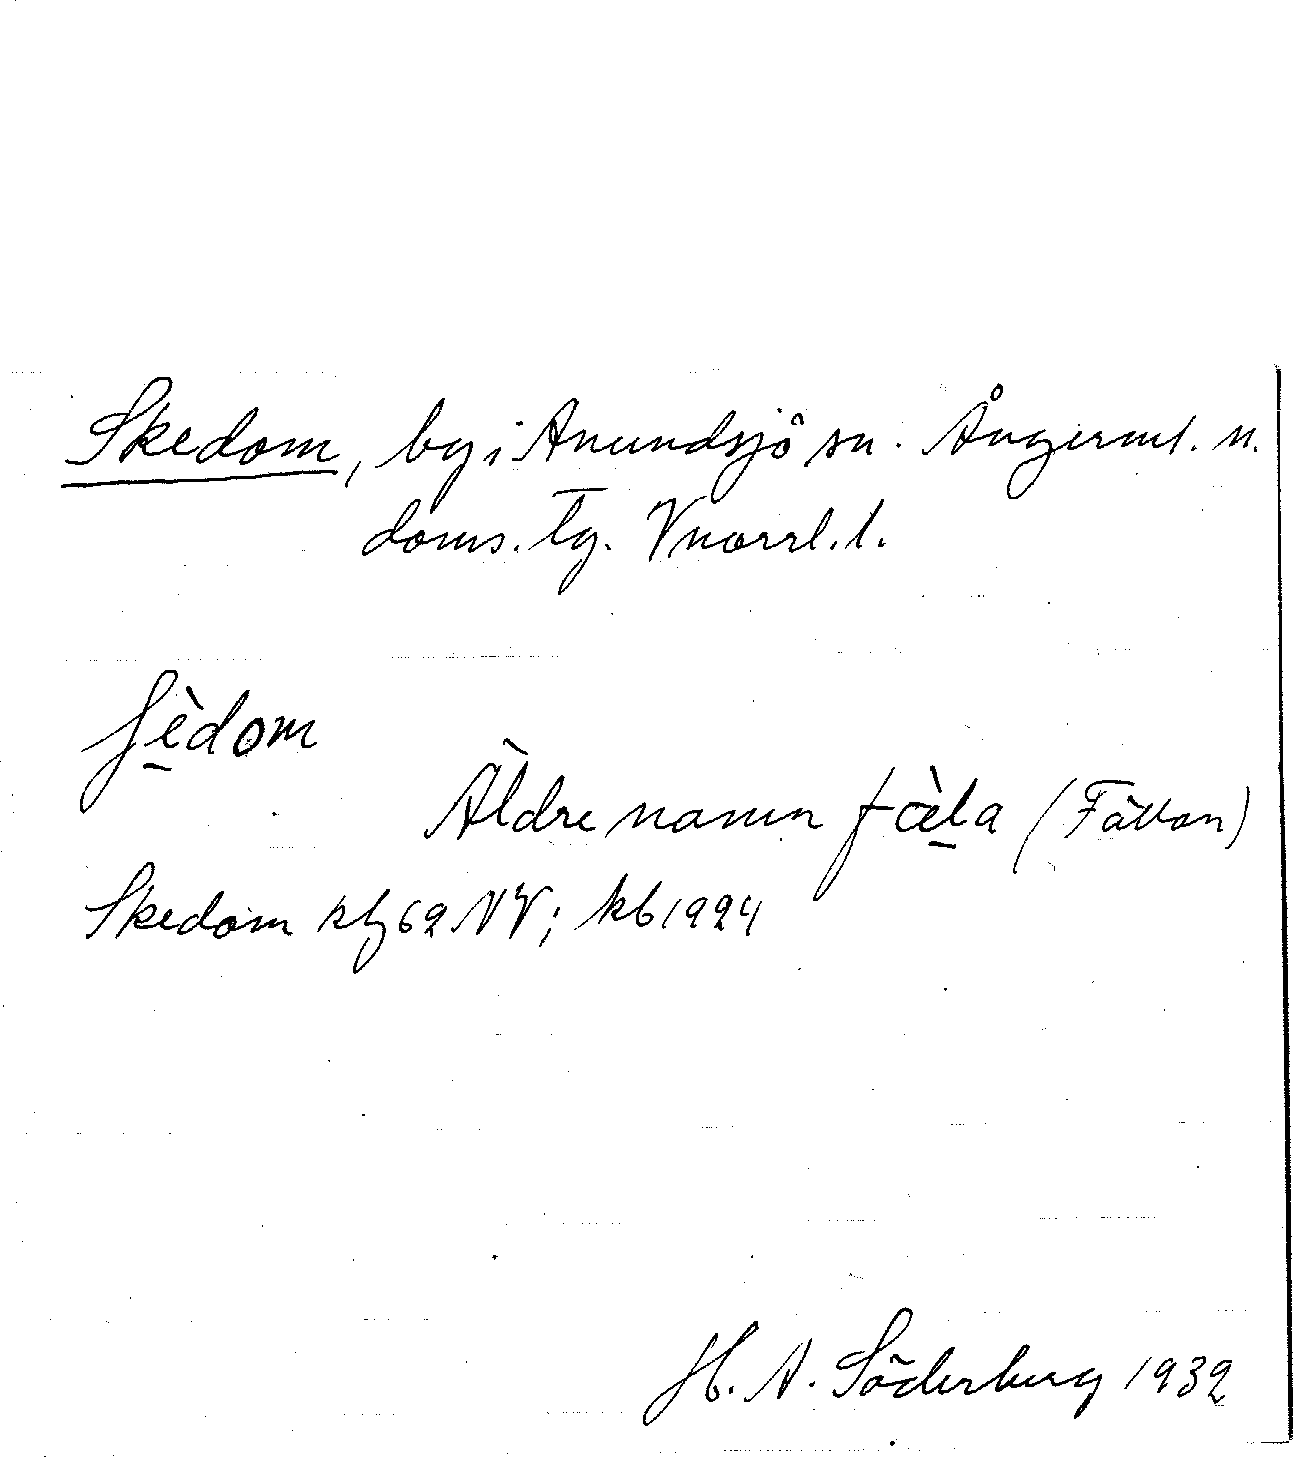 Skedom, by i Anundsjö sn. Ångerml. n.
doms. tg. Vnorrl. l.
ʃè̱dom
Äldre namn fæ̀la (Fällan)
Skedom kbl 62 NV; kb 1924
H. A. Söderberg 1932